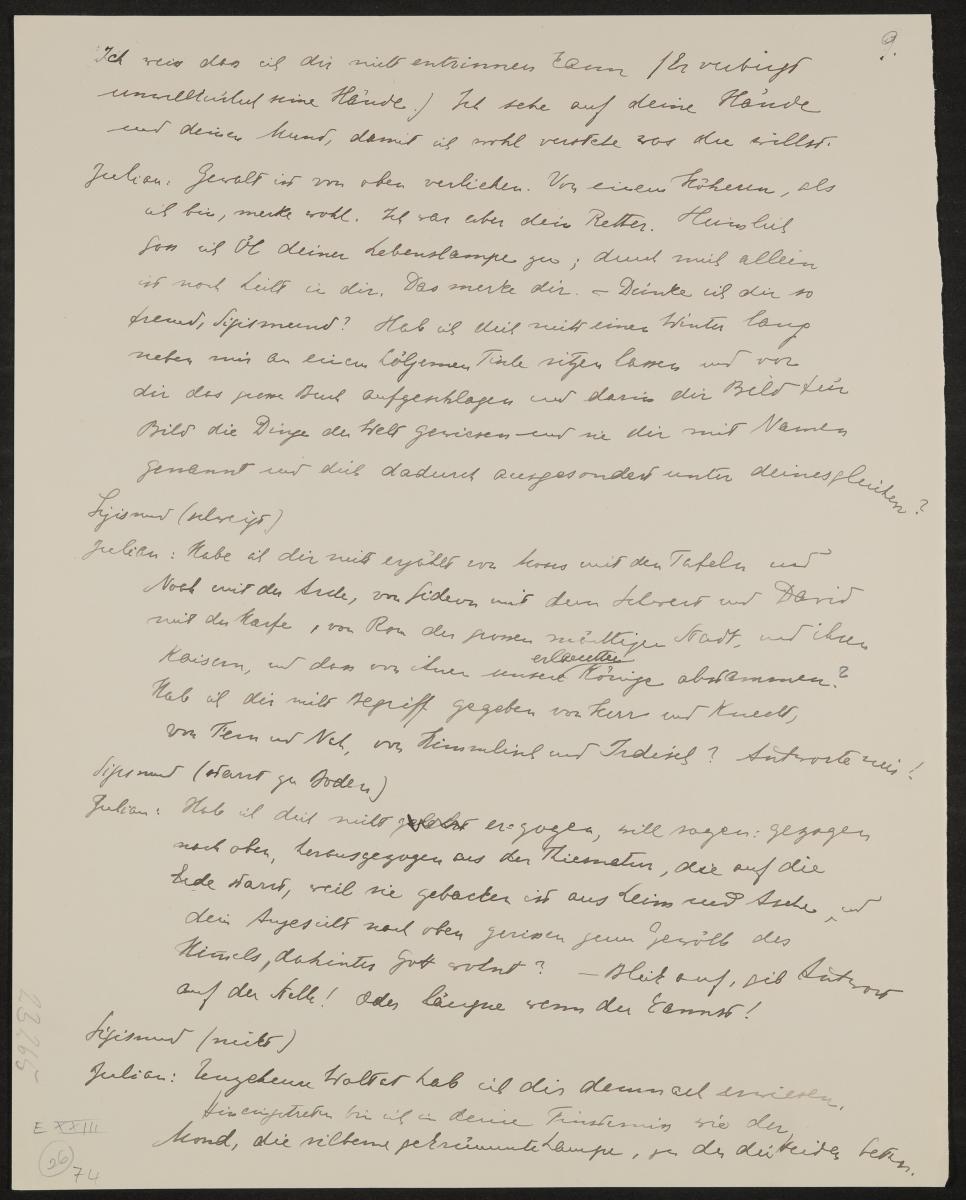 9.
Ich weiss dass ich dir nicht entrinnen kann (Er verbirgt
unwillkürlich seine Hände.) Ich sehe auf deine Hände
und deinen Mund, damit ich wohl verstehe was du willst.
Julian: Gewalt ist von oben verliehen. Von einem Höheren, als
ich bin, merke wohl. Ich war aber dein Retter. Heimlich
goss ich Öl deiner Lebenslampe zu; durch mich allein
ist noch Licht in dir. Das merke dir. – Dünke ich dir so
fremd, Sigismund? Hab ich dich nicht einen Winter lang
neben mir an einem hölzernen Tische sitzen lassen und vor
dir das grosse Buch aufgeschlagen und darin dir Bild für
Bild die Dinge der Welt gewiesen und sie dir mit Namen
genannt und dich dadurch ausgesondert unter deinesgleichen?
Sigismund (schweigt)
Julian: Habe ich dir nicht erzählt von Moses mit den Tafeln und
Noah mit der Arche, von Gideon mit dem Schwert und David
mit der Harfe, von Rom der grossen mächtigen Stadt, und ihren
erlauchten
Kaisern, und dass von ihnen unsere Könige abstammen?
Hab ich dir nicht Begriff gegeben von Herr und Knecht,
von Fern und Nah, von Himmlisch und Irdisch? Antworte mir!
Sigismund (starrt zu Boden)
Julian: Hab ich dich nicht gelehrt er=zogen, will sagen: gezogen
nach oben, herausgezogen aus der Thiernatur, die auf die
Erde starrt, weil sie gebacken ist aus Leim und Asche, und
dein Angesicht nach oben gerissen zum Gewölb des
Himmels, dahinter Gott wohnt? – Blick auf, gib Antwort
auf der Stelle! Oder läugne wenn du kannst!
Sigismund (nickt)
Julian: Ungeheure Wohltat hab ich dir demnach erwiesen.
Hineingetreten bin ich in deine Finsternis wie der
Mond, die silberne gekrümmte Lampe, zu der die Heiden beten.
23265
E XXIII
26
74